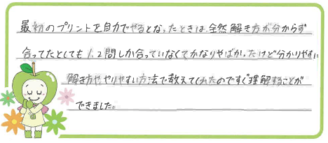 最初のプリントを自力でやるとなったときは、全然解き方が分からず
合ってたとしても1、2問しか合っていなくてかなりやばかったけど分かりやすい
解き方ややりやすい方法で教えてくれたのですぐ理解することが
できました。